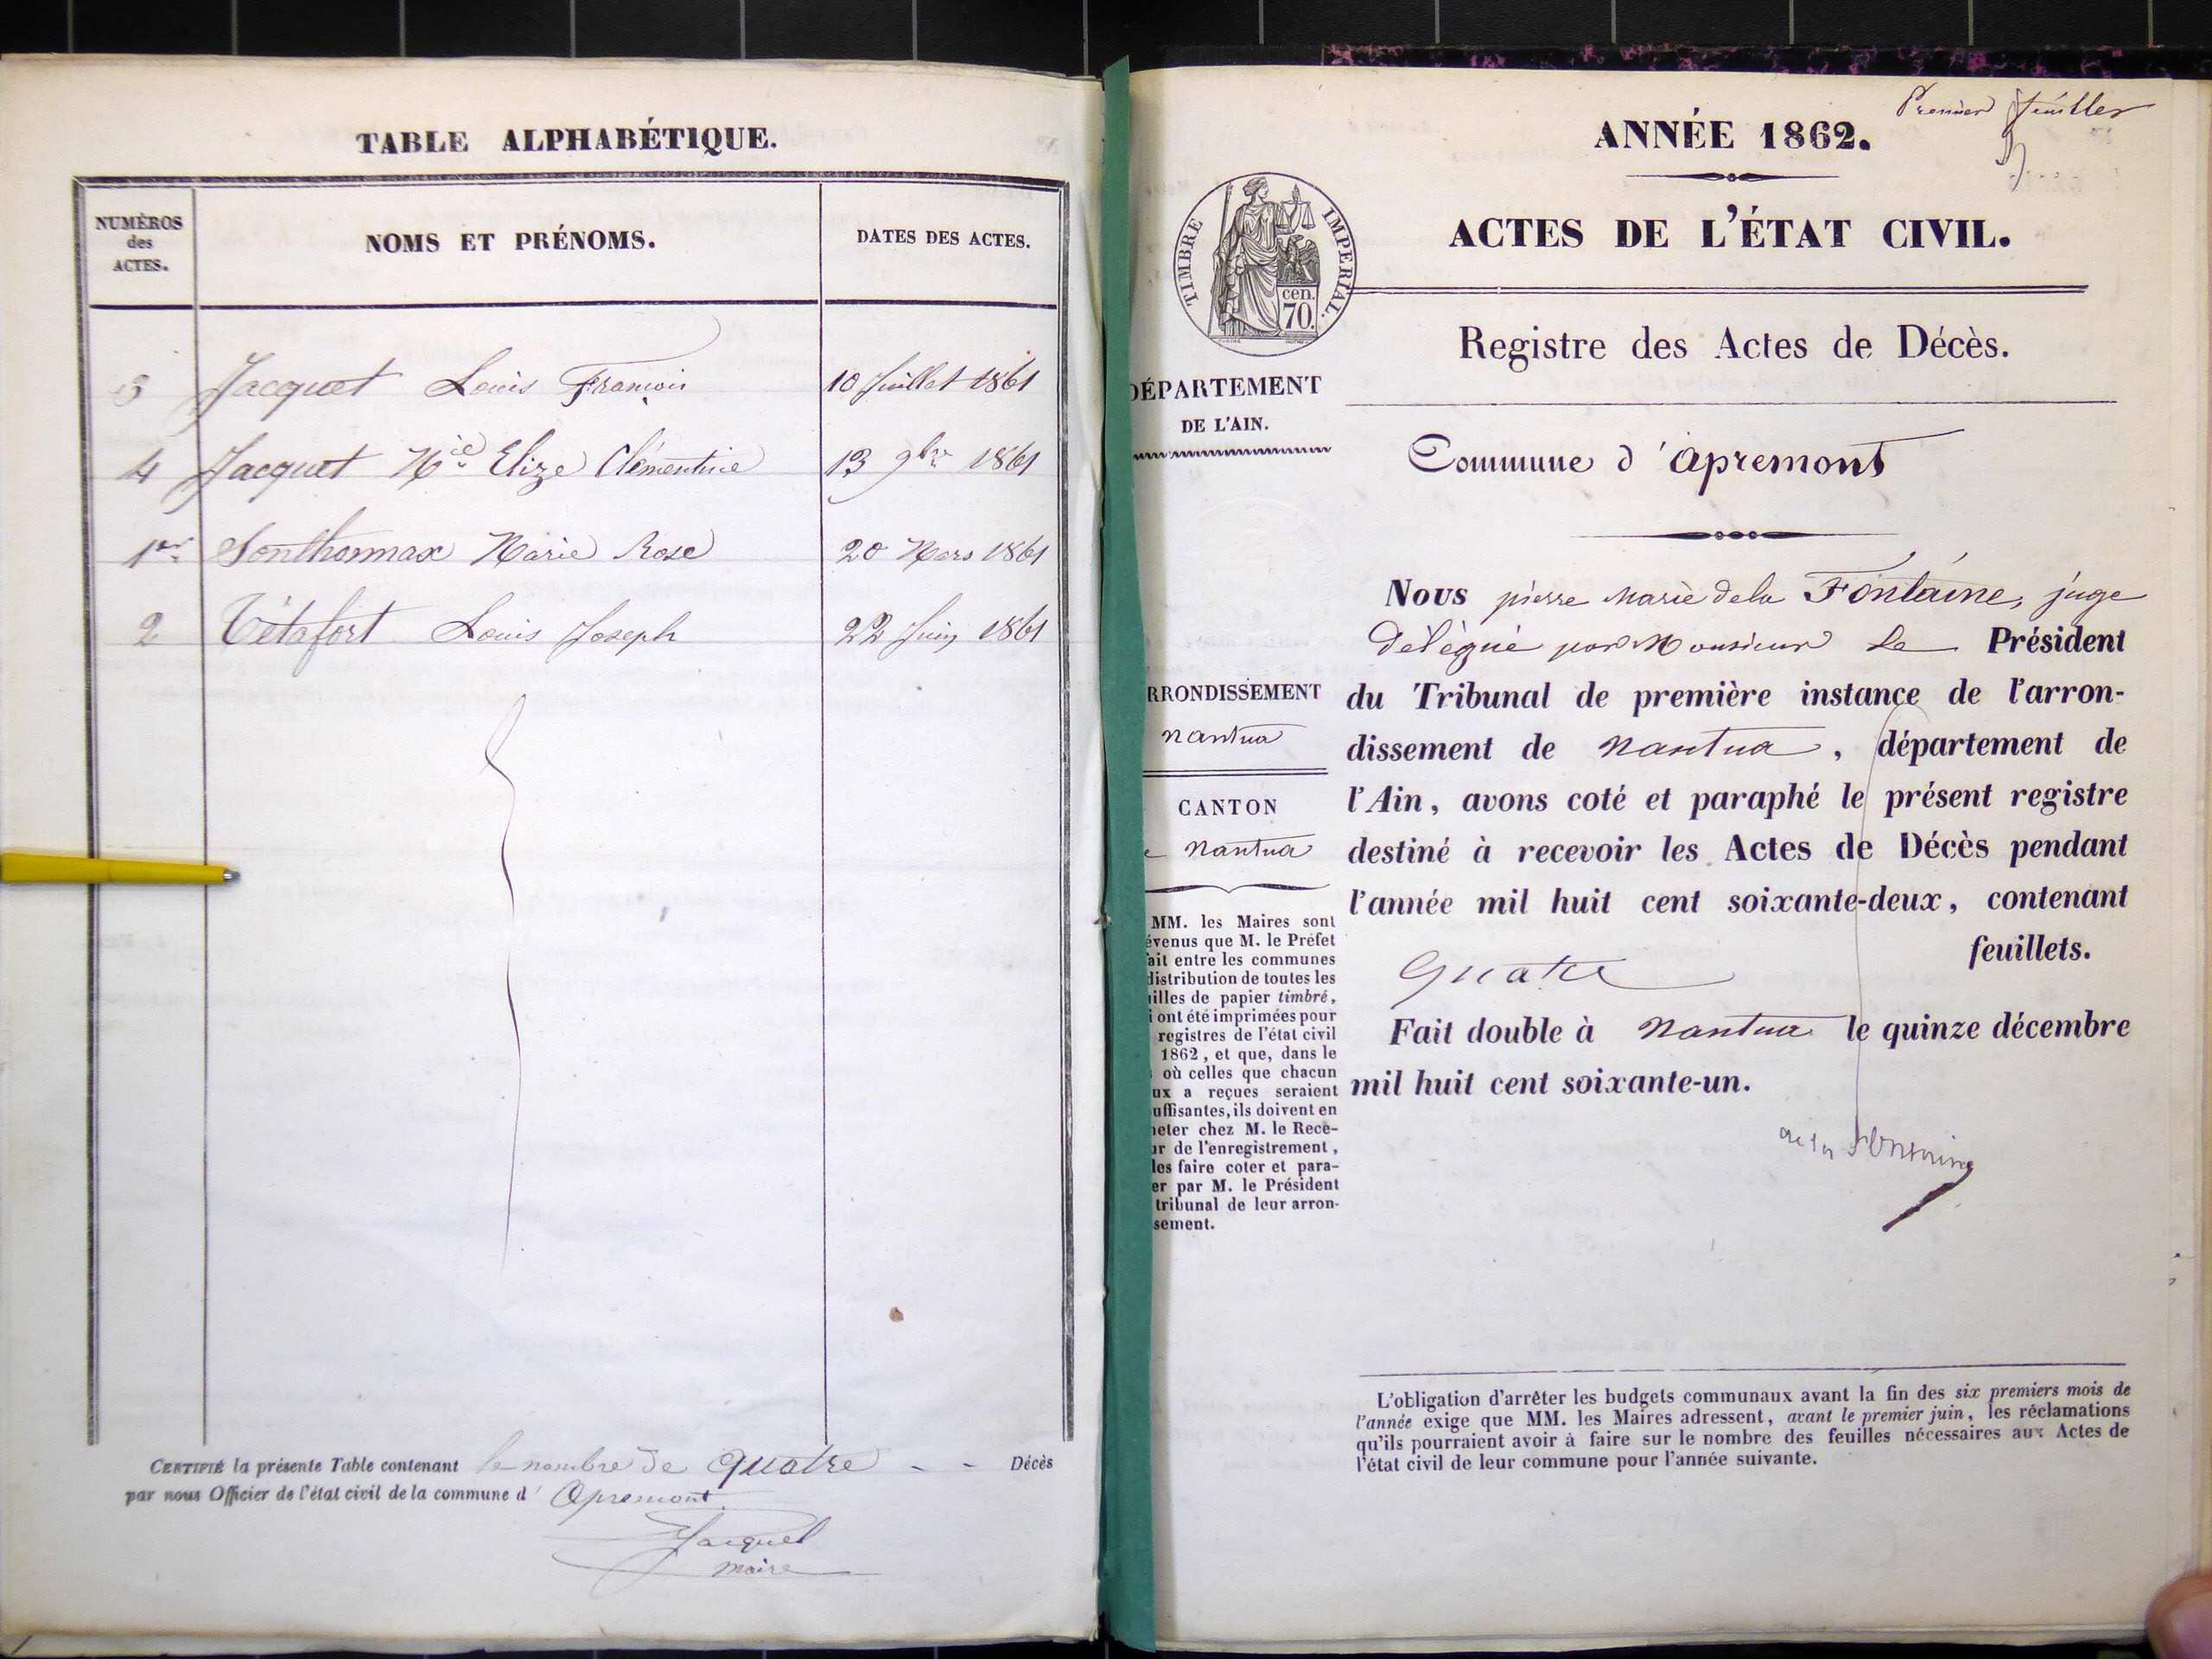 TABLE ALPHABÉTIQUE.
NUMÉROS
des
ACTES.
NOMS ET PRÉNOMS.
DATES DES ACTES.
3 Jacquet Louis François 10 Juillet 1861
4 Jacquet Mie Elize Clémentine 13 9bre 1861
1er Sonthonnax Marie Rose 20 Mars 1861
2 Tétafort Louis Joseph 22 Juin 1861
CERTIFIÉ la présente Table contenant le nombre de quatre - - Décès
par nous Officier de l'état civil de la commune d' Apremont.
Jacquet
Maire
Premier feuillet
ANNÉE 1862.
ACTES DE L'ÉTAT CIVIL.
TIMBRE IMPÉRIAL.
cen.
70.
Registre des Actes de Décès.
DÉPARTEMENT
DE L'AIN.
Commune d'apremont
RRONDISSEMENT
nantua
CANTON
e nantua
MM. les Maires sont
évenus que M. le Préfet
ait entre les communes
distribution de toutes les
illes de papier timbré,
i ont été imprimées pour
registres de l'état civil
1862, et que, dans le
où celles que chacun
ux a reçues seraient
uffisantes, ils doivent en
heter chez M. le Rece-
ur de l'enregistrement,
les faire coter et para-
er par M. le Président
tribunal de leur arron-
sement.
Nous pierre Marie dela Fontaine, juge
délégué par Monsieur le Président
du Tribunal de première instance de l'arron-
dissement de nantua, département de
l'Ain, avons coté et paraphé le présent registre
destiné à recevoir les Actes de Décès pendant
l'année mil huit cent soixante-deux, contenant
quatre feuillets.
Fait double à nantua le quinze décembre
mil huit cent soixante-un.
de la fontaine
L'obligation d'arrêter les budgets communaux avant la fin des six premiers mois de
l'année exige que MM. les Maires adressent, avant le premier juin, les réclamations
qu'ils pourraient avoir à faire sur le nombre des feuilles nécessaires aux Actes de
l'état civil de leur commune pour l'année suivante.